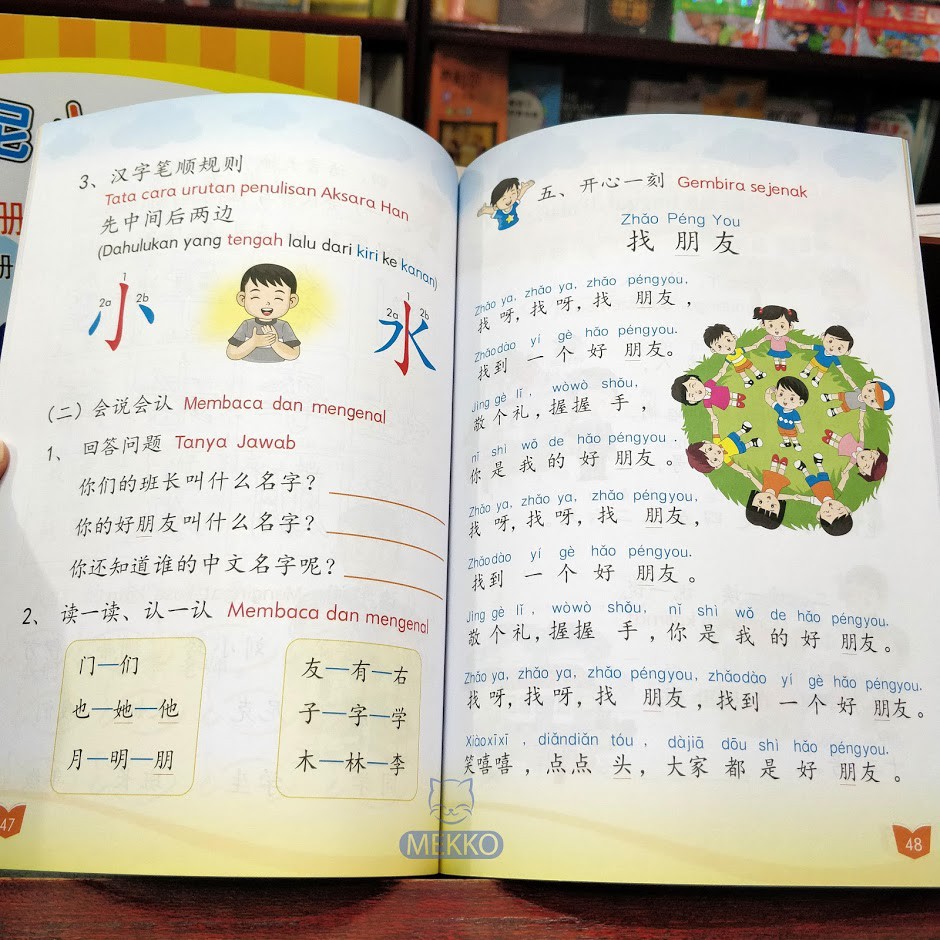 3、汉字笔顺规则
Tata cara urutan penulisan Aksara Han
先中间后两边
(Dahulukan yang tengah lalu dari kiri ke kanan)
1
2a 小 2b
1
2a 水 2b
(二) 会说会认 Membaca dan mengenal
1、 回答问题 Tanya Jawab
你们的班长叫什么名字?
你的好朋友叫什么名字?
你还知道谁的中文名字呢?
2、 读一读、认一认 Membaca dan mengenal
门—们
也—她—他
月—明—朋
友—有—右
子—字—学
木—林—李
47
五、开心一刻 Gembira sejenak
Zhǎo Péng You
找 朋 友
Zhǎo ya, zhǎo ya, zhǎo péngyou,
找 呀, 找 呀, 找 朋友,
Zhǎodào yí gè hǎo péngyou.
找到 一 个 好 朋友。
Jìng gè lǐ, wòwò shǒu,
敬 个 礼, 握握 手,
nǐ shì wǒ de hǎo péngyou.
你 是 我 的 好 朋友。
Zhǎo ya, zhǎo ya, zhǎo péngyou,
找 呀, 找 呀, 找 朋友,
Zhǎodào yí gè hǎo péngyou.
找到 一 个 好 朋友。
Jìng gè lǐ, wòwò shǒu, nǐ shì wǒ de hǎo péngyou.
敬 个 礼, 握握 手, 你 是 我 的 好 朋友。
Zhǎo ya, zhǎo ya, zhǎo péngyou, zhǎodào yí gè hǎo péngyou.
找 呀, 找 呀, 找 朋友, 找到 一 个 好 朋友。
Xiàoxīxī, diǎndiǎn tóu, dàjiā dōu shì hǎo péngyou.
笑嘻嘻, 点点 头, 大家 都 是 好 朋友。
48
MEKKO
册
册